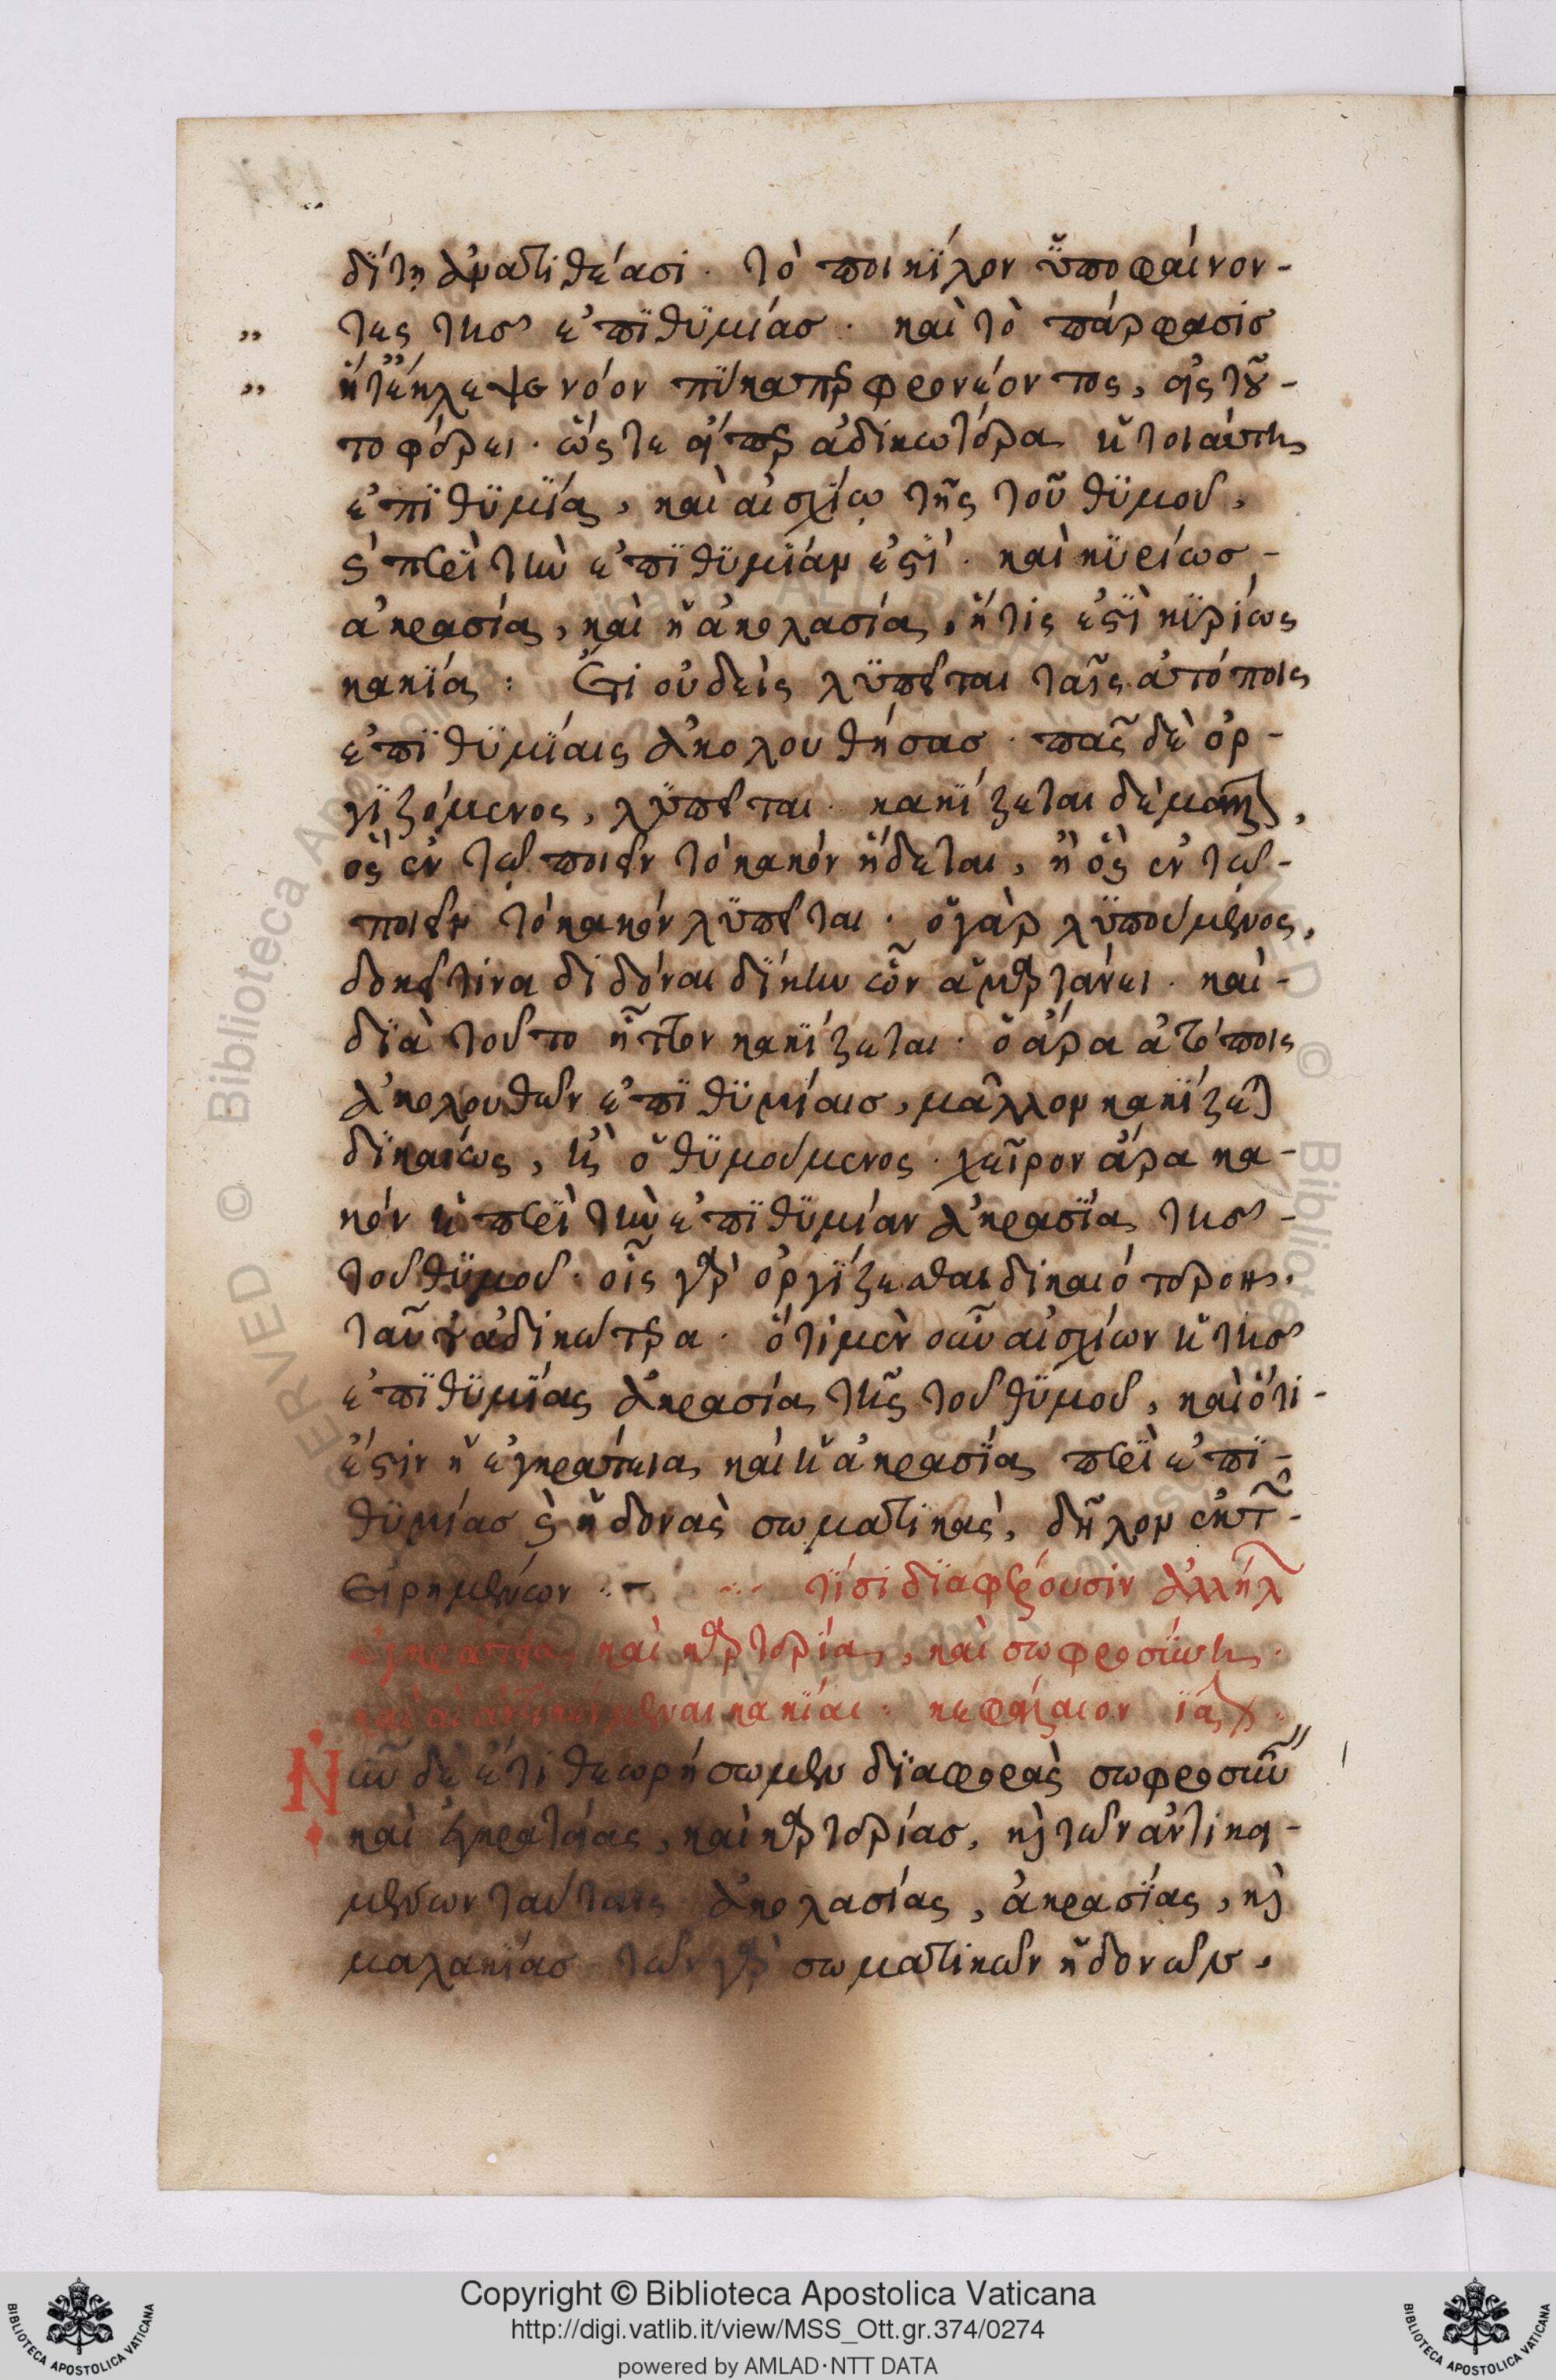 δίτη ἀνατιθέασι · τὸ ποικίλον ὑποφαίνον-
τες τῆς ἐπιθυμίας · καὶ τὸ πάρφασις
ἥτ' ἔκλεψε νόον πύκαπερ φρονέοντος, εἰς τοῦ-
το φέρει · ὥστε εἴπερ ἀδικωτέρα ἡ τοιαύτη
ἐπιθυμία, καὶ αἰσχίω τῆς τοῦ θυμοῦ,
ἡ περὶ τὴν ἐπιθυμίαν ἐστί · καὶ κυρίως
ἀκρασία, καὶ ἡ ἀκολασία, ἥτις ἐστὶ κυρίως
κακία : Ἔτι οὐδεὶς λυπεῖται ταῖς ἀτόποις
ἐπιθυμίαις ἀκολουθήσας · πᾶς δὲ ὀρ-
γιζόμενος, λυπεῖται · κακίζεται δὲ μᾶλλον,
ὃς ἐν τῷ ποιεῖν τὸ κακόν ἥδεται, ἢ ὃς ἐν τῷ-
ποιεῖν τὸ κακόν λυπεῖται · ὁ γὰρ λυπούμενος,
δοκεῖ τινα διδόναι δίκην ὧν ἁμαρτάνει · καὶ-
διὰ τοῦτο ἧττον κακίζεται · ὁ ἄρα ἀτόποις
ἀκολουθῶν ἐπιθυμίαις, μᾶλλον κακίζεται
δικαίως, ἢ ὁ θυμούμενος · χεῖρον ἄρα κα-
κόν ἡ περὶ τὴν ἐπιθυμίαν ἀκρασία τῆς-
τοῦ θυμοῦ · οἷς γὰρ ὀργίζεσθαι δικαιότερον ·
ταῦτα ἀδικώτερα · ὅτι μὲν οὖν αἰσχίων ἡ τῆς
ἐπιθυμίας ἀκρασία τῆς τοῦ θυμοῦ, καὶ ὅτι-
ἔστιν ἡ ἐγκράτεια καὶ ἡ ἀκρασία περὶ ἐπι-
θυμίας καὶ ἡδονὰς σωματικὰς, δῆλον ἐκ τῶν-
εἰρημένων : - τίσι διαφέρουσιν ἀλλήλων
ἐγκράτεια, καὶ καρτερία, καὶ σωφροσύνη ·
καὶ αἱ ἀντικείμεναι κακίαι : κεφάλαιον ιαʹ ·
Νῦν δὲ ἔτι θεωρήσωμεν διαφορὰς σωφροσύνης
καὶ ἐγκρατείας, καὶ καρτερίας, καὶ τῶν ἀντικει-
μένων ταύταις ἀκολασίας, ἀκρασίας, καὶ
μαλακίας τῶν γὰρ σωματικῶν ἡδονῶν,
Copyright © Biblioteca Apostolica Vaticana
http://digi.vatlib.it/view/MSS_Ott.gr.374/0274
powered by AMLAD·NTT DATA